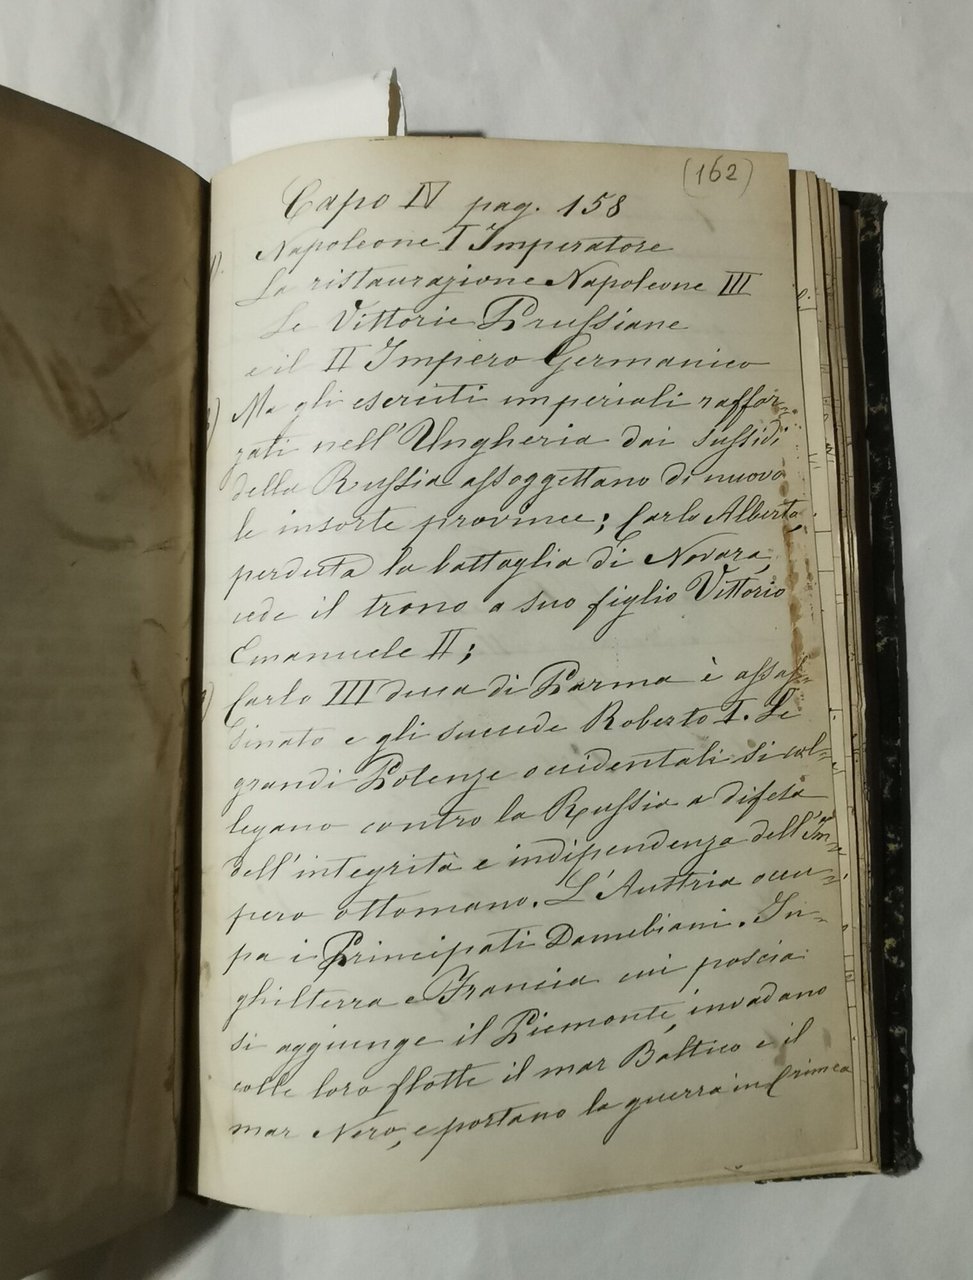 (162)
Capo IV pag. 158
1) Napoleone I Imperatore
La ristaurazione Napoleone III
Le Vittorie Prussiane
e il II Impero Germanico
2) Ma gli eserciti imperiali raffor-
zati nell'Ungheria dai sussidi
della Russia assoggettano di nuovo
le insorte province; Carlo Alberto,
perduta la battaglia di Novara,
cede il trono a suo figlio Vittorio
Emanuele II;
3) Carlo III duca di Parma è assas-
sinato e gli succede Roberto I. Le
grandi Potenze occidentali si col-
legano contro la Russia a difesa
dell'integrità e indipendenza dell'Im-
pero ottomano. L'Austria occu-
pa i Principati Danubiani. In-
ghilterra e Francia cui poscia
si aggiunge il Piemonte, invadano
colle loro flotte il mar Baltico e il
mar Nero, e portano la guerra in Crimea